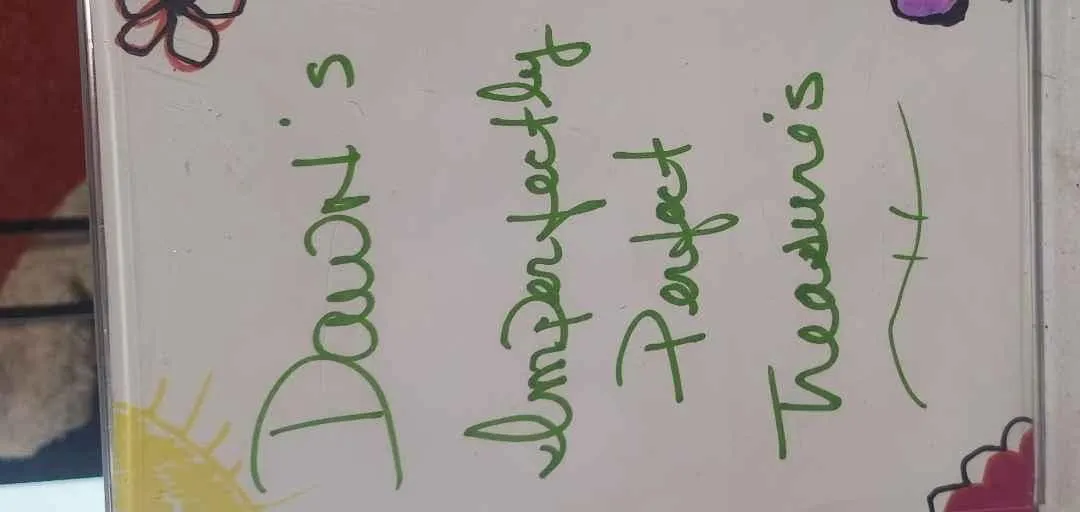 Dawn's
Imperfectly
Perfect
Treasure's